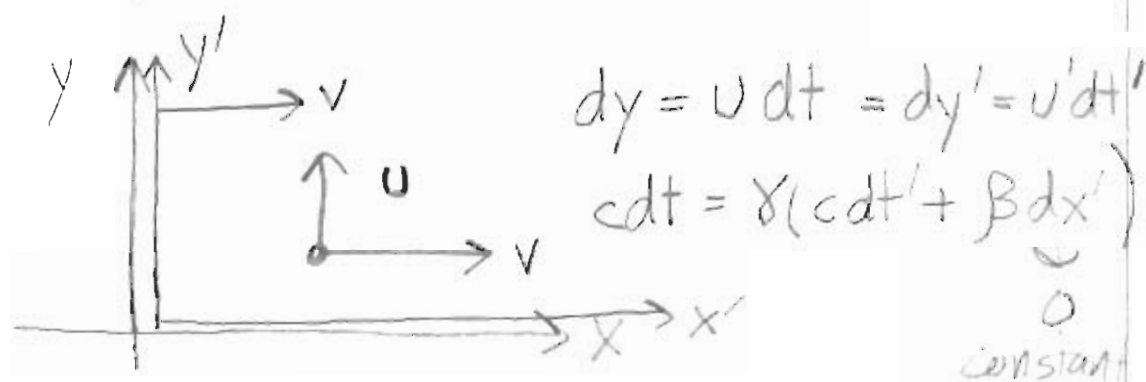 y y'
v
u
v
x x'
dy = u dt = dy' = u'dt'
cdt = γ(cdt' + βdx')
0
constant